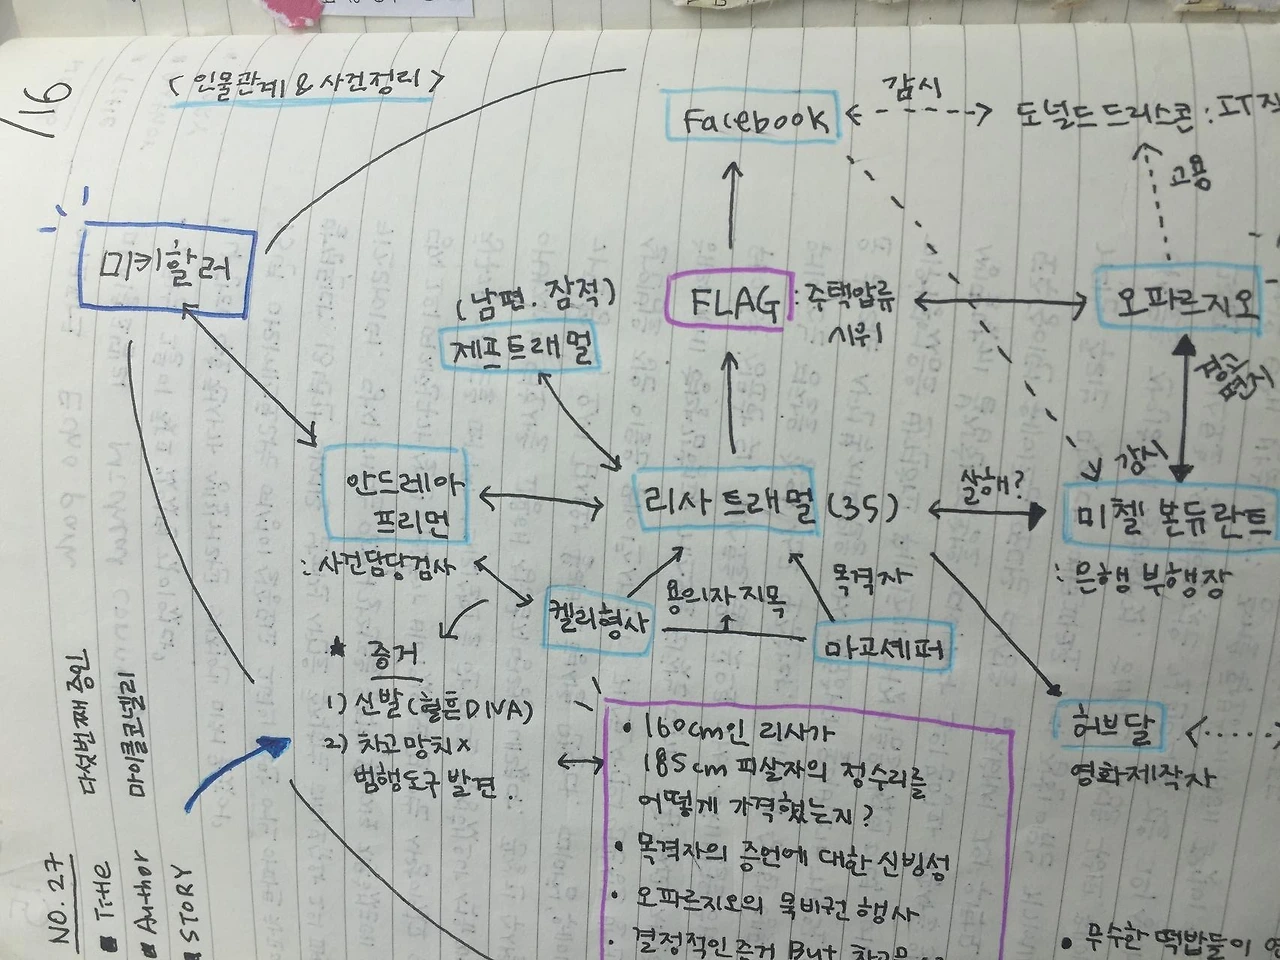 116
< 인물관계 & 사건정리 >
Facebook
감시
도널드 드리스콘 : IT
고용
미키할러
(남편. 잠적)
제프트래멀
FLAG : 주택압류
시위
오파르지오
편지
안드레아
프리먼
: 사건담당검사
리사 트래멀 (35)
살해?
감시
미첼 본듀란트
: 은행 부행장
켈리형사
용의자 지목
목격자
마고셰퍼
★ 증거
1) 신발 (혈흔 DNA)
2) 차고망치 x
범행도구 발견.
허브달
영화제작자
• 160cm인 리사가
185cm 피살자의 정수리를
어떻게 가격했는지?
• 목격자의 증언에 대한 신빙성
• 오파르지오의 묵비권 행사
• 결정적인 증거 But
• 무수한 떡밥들이
NO. 27
■ Title 다섯번째 증인
■ Author 마이클코넬리
■ STORY